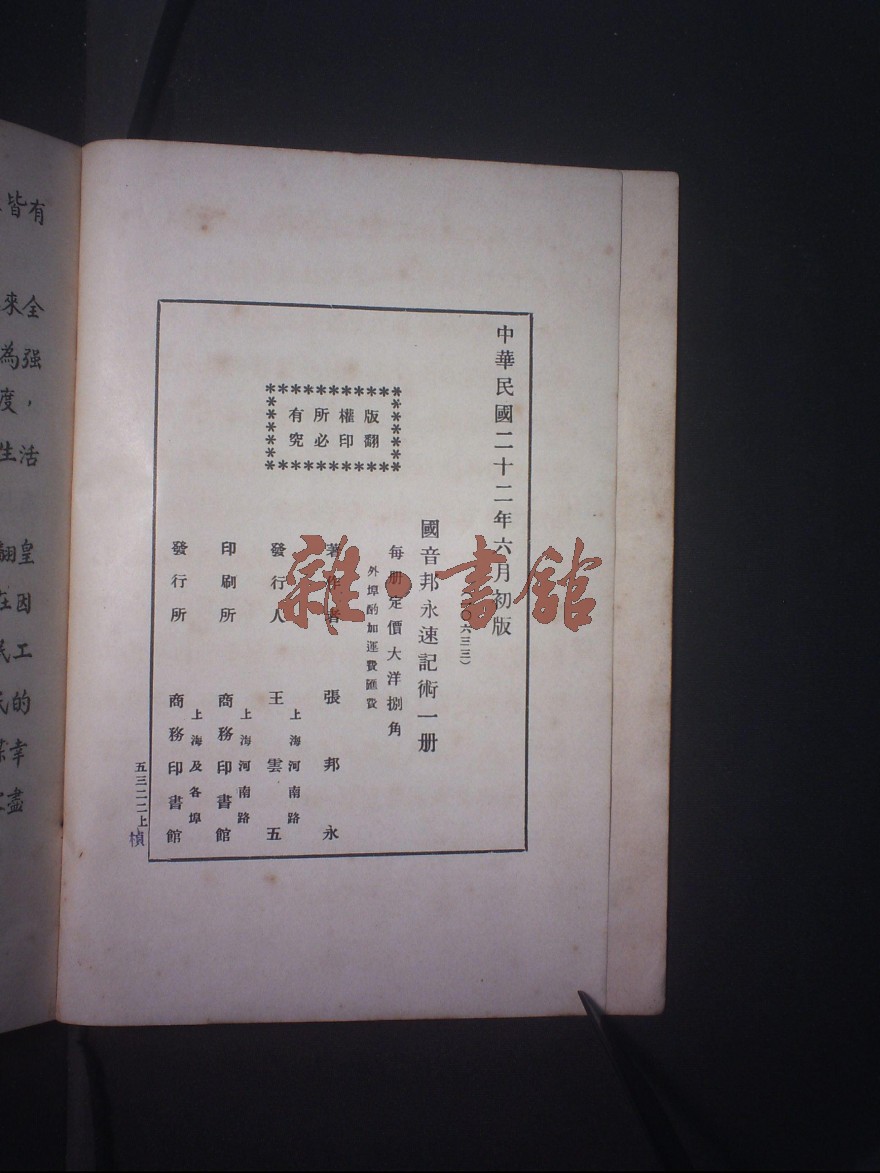 中華民國二十二年六月初版
〇六三三）
國音邦永速記術一册
每册定價大洋捌角
外埠酌加運費匯費
版權所有
翻印必究
著作者 張邦永
發行人 王雲五
上海河南路
印刷所 商務印書館
上海河南路
發行所 商務印書館
上海及各埠
五三二二上
楨
雜·書館
皆有
來全
為强
度，
生活
翻皇
在因
民工
民的
幸
盡